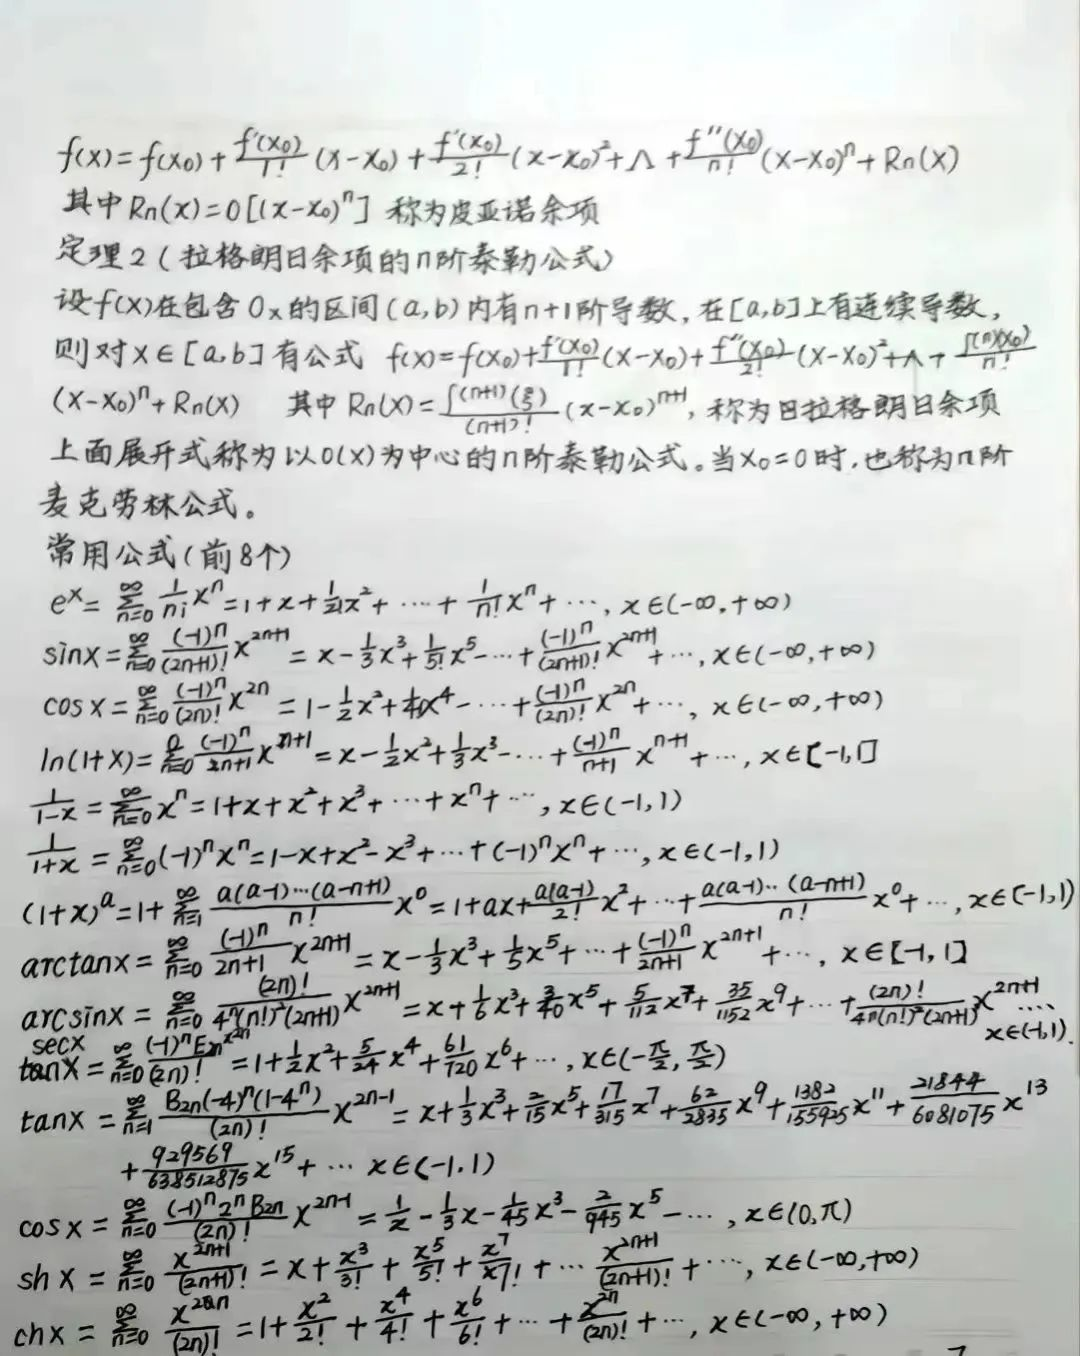 f(x)=f(x₀)+f'(x₀)/1!(x-x₀)+f'(x₀)/2!(x-x₀)²+Λ+f''(x₀)/n!(x-x₀)ⁿ+Rn(x)
其中Rn(x)=0[(x-x₀)ⁿ] 称为皮亚诺余项
定理2(拉格朗日余项的n阶泰勒公式)
设f(x)在包含0ₓ的区间(a,b)内有n+1阶导数,在[a,b]上有连续导数,
则对x∈[a,b]有公式 f(x)=f(x₀)+f'(x₀)/1!(x-x₀)+f''(x₀)/2!(x-x₀)²+Λ+∫(n)(x₀)/n!
(x-x₀)ⁿ+Rn(x) 其中Rn(x)=∫(n+1)(ξ)/(n+1)!(x-x₀)ⁿ⁺¹,称为日拉格朗日余项
上面展开式称为以0(x)为中心的n阶泰勒公式。当x₀=0时,也称为n阶
麦克劳林公式。
常用公式(前8个)
eˣ=∑(n=0,∞) 1/n¡ xⁿ=1+x+1/2!x²+⋯+1/n!xⁿ+⋯,x∈(-∞,+∞)
sinx=∑(n=0,∞) (-1)ⁿ/(2n+1)! x²ⁿ⁺¹=x-1/3x³+1/5!x⁵-⋯+(-1)ⁿ/(2n+1)! x²ⁿ⁺¹+⋯,x∈(-∞,+∞)
cosx=∑(n=0,∞) (-1)ⁿ/(2n)! x²ⁿ=1-1/2x²+1/4!x⁴-⋯+(-1)ⁿ/(2n)! x²ⁿ+⋯,x∈(-∞,+∞)
ln(1+x)=∑(n=0) (-1)ⁿ/2n+1 xⁿ⁺¹=x-1/2x²+1/3x³-⋯+(-1)ⁿ/n+1 xⁿ⁺¹+⋯,x∈[-1,1]
1/1-x=∑(n=0,∞) xⁿ=1+x+x²+x³+⋯+xⁿ+⋯,x∈(-1,1)
1/1+x=∑(n=0,∞) (-1)ⁿxⁿ=1-x+x²-x³+⋯+(-1)ⁿxⁿ+⋯,x∈(-1,1)
(1+x)ᵃ=1+∑(n=1,∞) a(a-1)⋯(a-n+1)/n! x⁰=1+ax+a(a-1)/2!x²+⋯+a(a-1)⋯(a-n+1)/n! x⁰+⋯,x∈(-1,1)
arctanx=∑(n=0,∞) (-1)ⁿ/2n+1 x²ⁿ⁺¹=x-1/3x³+1/5x⁵+⋯+(-1)ⁿ/2n+1 x²ⁿ⁺¹+⋯,x∈[-1,1]
arcsinx=∑(n=0,∞) (2n)!/4ⁿ(n!)²(2n+1) x²ⁿ⁺¹=x+1/6x³+3/40x⁵+5/112x⁷+35/1152x⁹+⋯+(2n)!/4ⁿ(n!)²(2n+1) x²ⁿ⁺¹⋯,
x∈(-1,1).
secx
tanx=∑(n=0,∞) (-1)ⁿE₂ₙx²ⁿ/(2n)!=1+1/2x²+5/24x⁴+61/720x⁶+⋯,x∈(-π/2,π/2)
tanx=∑(n=1,∞) B₂ₙ(-4)ⁿ(1-4ⁿ)/(2n)! x²ⁿ⁻¹=x+1/3x³+2/15x⁵+17/315x⁷+62/2835x⁹+1382/155925x¹¹+21844/6081075x¹³
+929569/638512875x¹⁵+⋯ x∈(-1.1)
cosx=∑(n=0,∞) (-1)ⁿ2ⁿB₂ₙ/(2n)! x²ⁿ⁻¹=1/x-1/3x-1/45x³-2/945x⁵-⋯,x∈(0,π)
shx=∑(n=0,∞) x²ⁿ⁺¹/(2n+1)!=x+x³/3!+x⁵/5!+x⁷/x7!+⋯x²ⁿ⁺¹/(2n+1)!+⋯,x∈(-∞,+∞)
chx=∑(n=0,∞) x²ⁿ/(2n)!=1+x²/2!+x⁴/4!+x⁶/6!+⋯+x²ⁿ/(2n)!+⋯,x∈(-∞,+∞)